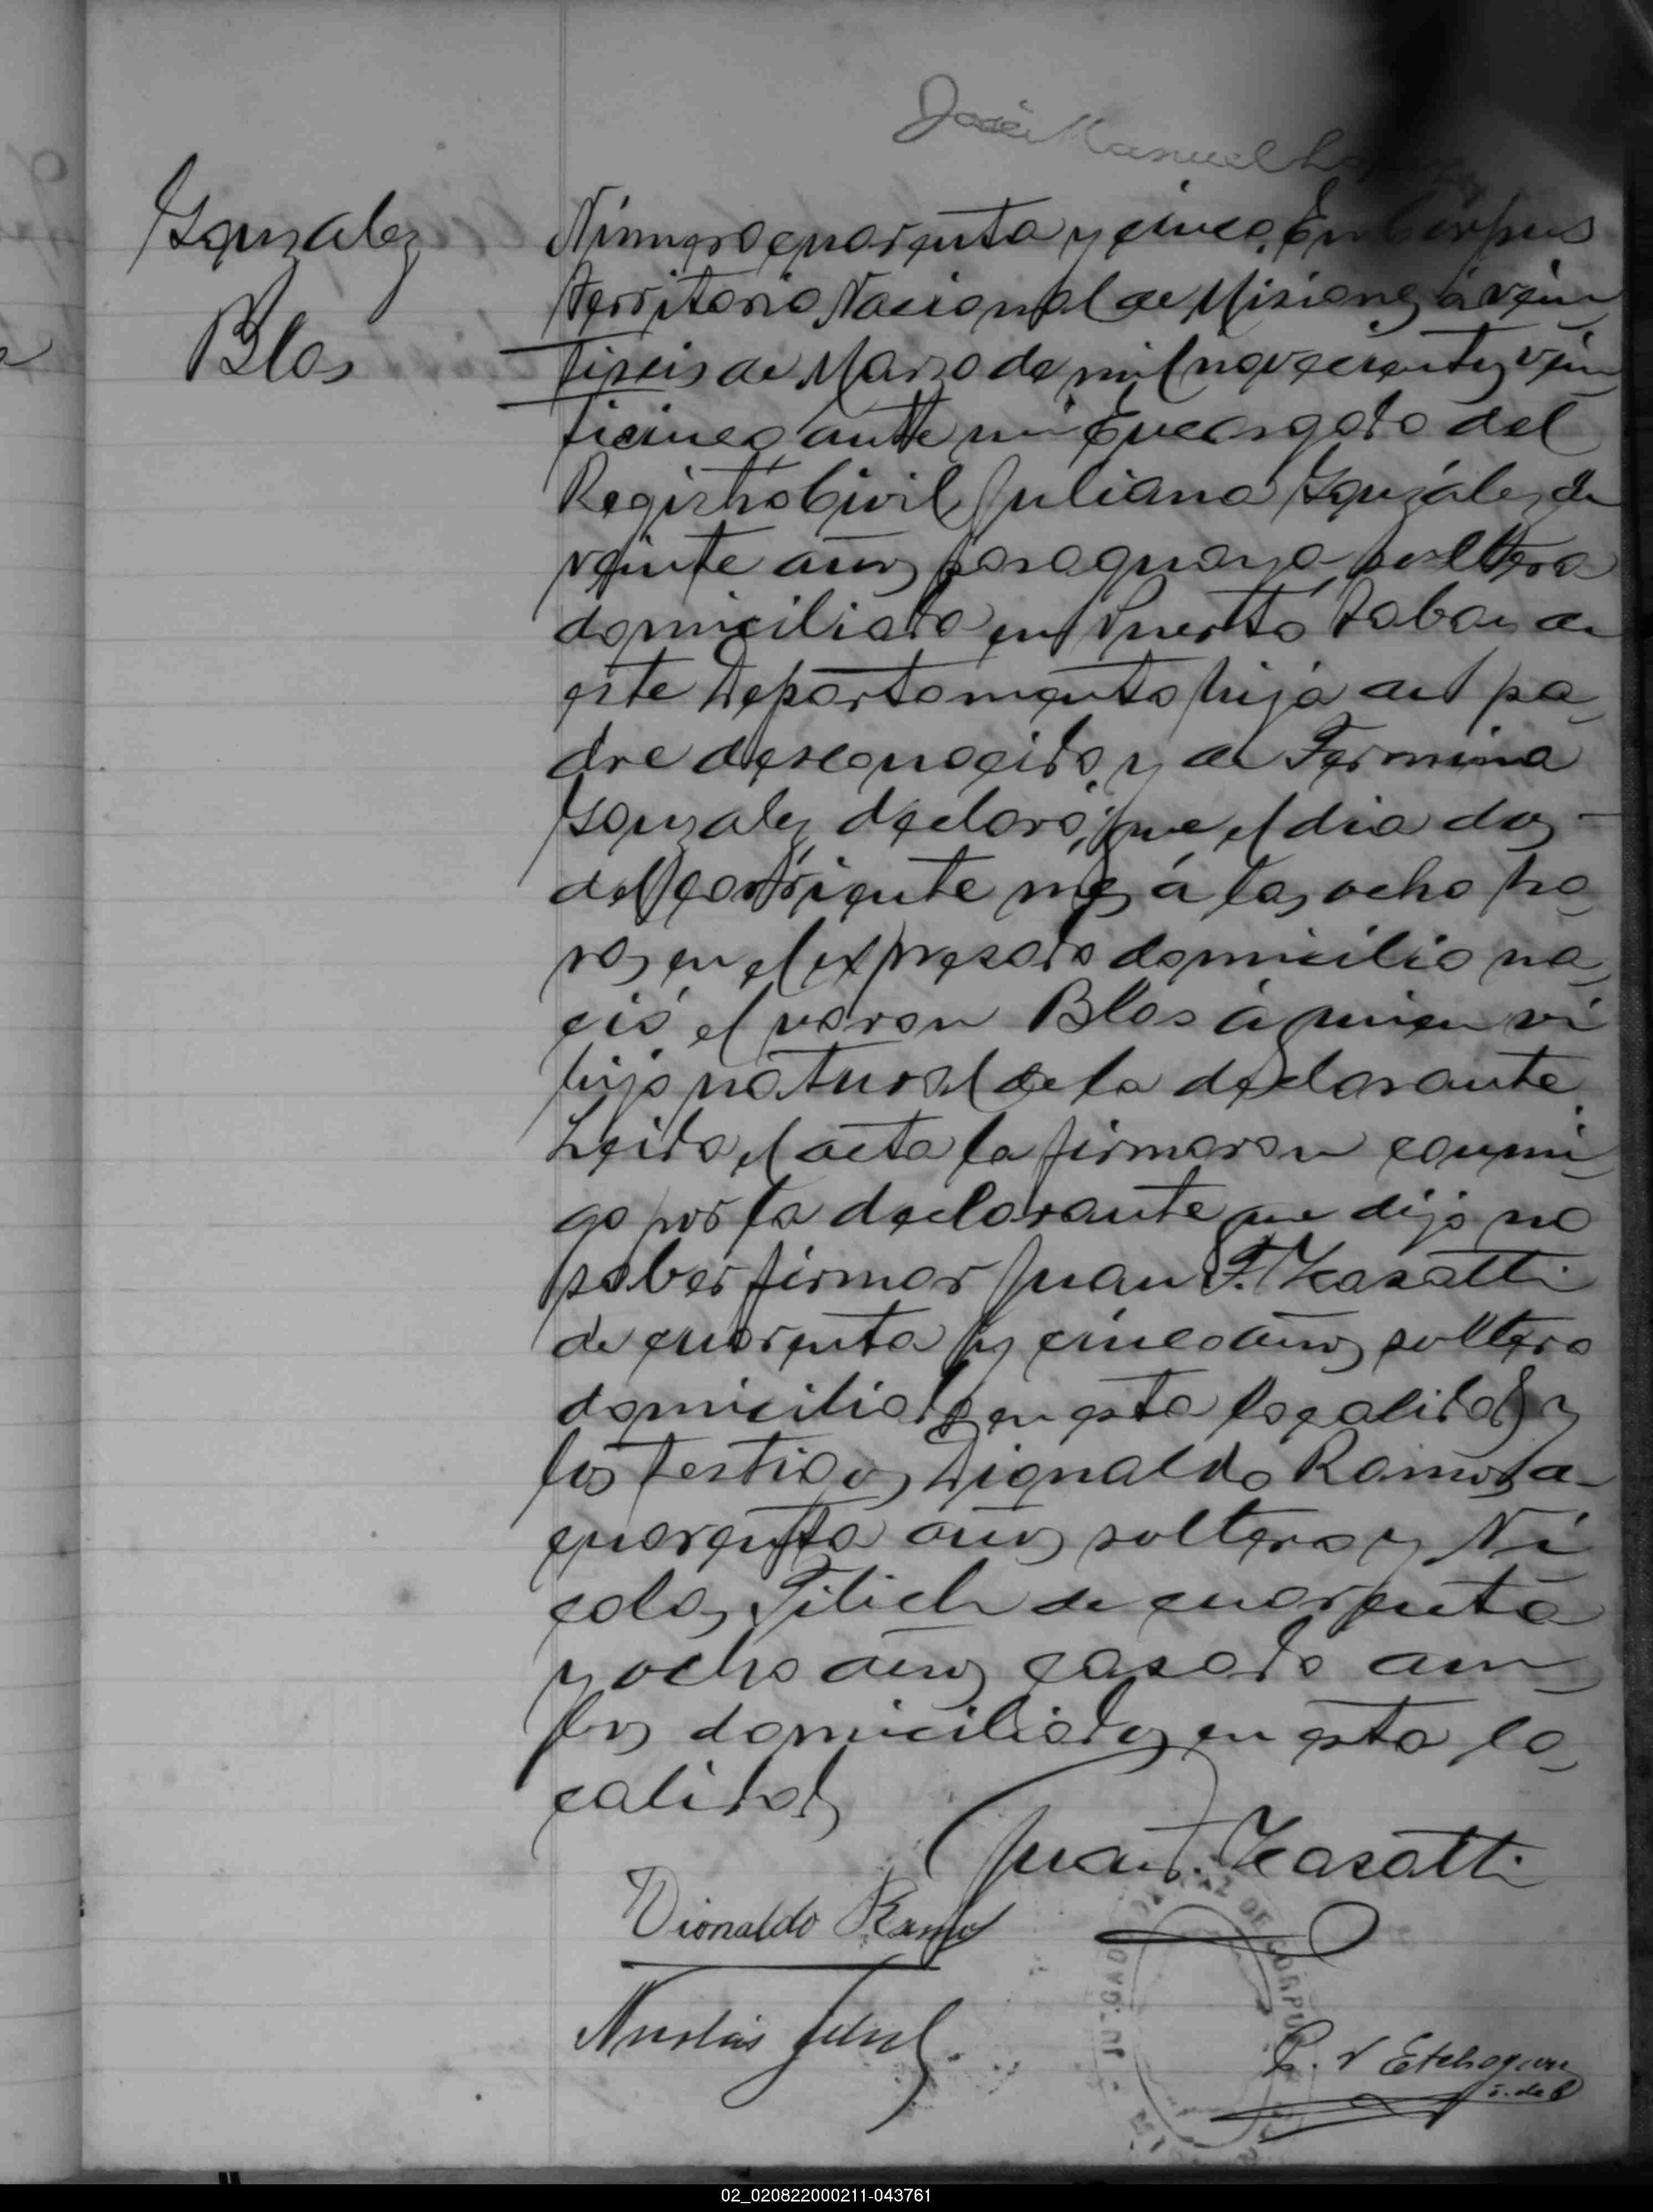 José Manuel
Gonzalez
Blas
Número cuarenta y cinco. En Corpus
Territorio Nacional de Misiones á vein
tiseis de Marzo de mil novecientos vein
ticinco ante mi Encargado del
Registro Civil Juliana González de
veinte años paraguaya soltera
domiciliada en Puerto Tabay de
este Departamento hija de padre
dre desconocido y de Fermina
Gonzalez declaró: que el dia dos
del corriente mes á las ocho ho
ras en el expresado domicilio na
ció el varon Blas á quien vi
hijo natural de la declarante
Leida el acta la firmaron conmi
go por la declarante que dijo no
saber firmar Juan F. Kasatti
de cuarenta y cinco años soltero
domiciliado en esta localidad y
los testigos Dignaldo Ramos de
cuarenta años soltero y Ni
colas Filich de cuarenta
y ocho años casado am
bos domiciliados en esta lo
calidad
Juan F. Kasatti
Dionaldo Ramos
Nicolás
DE PAZ DE CORPUS
JUZGADO
E. V Etchegaray
J. de P
02_020822000211-043761